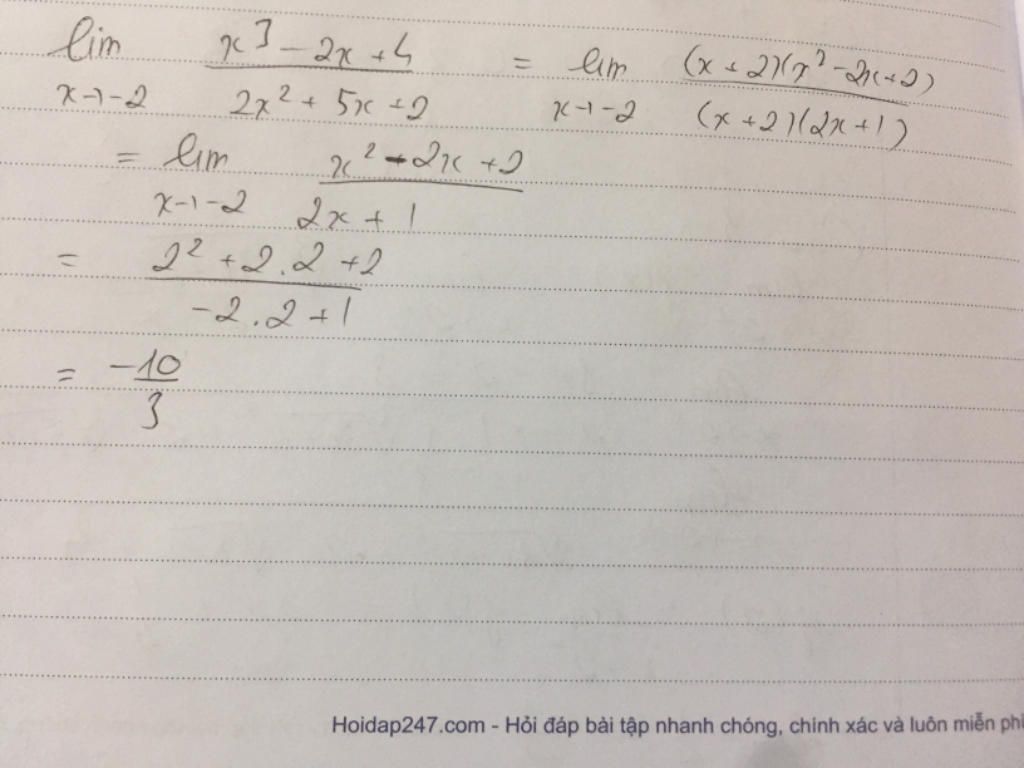 lim x³ - 2x + 4 / 2x² + 5x + 2 = lim (x + 2)(x² - 2x + 2) / (x + 2)(2x + 1)
x→-2 x→-2
= lim x² - 2x + 2 / 2x + 1
x→-2
= 2² + 2.2 + 2 / -2.2 + 1
= -10 / 3
Hoidap247.com - Hỏi đáp bài tập nhanh chóng, chính xác và luôn miễn phí